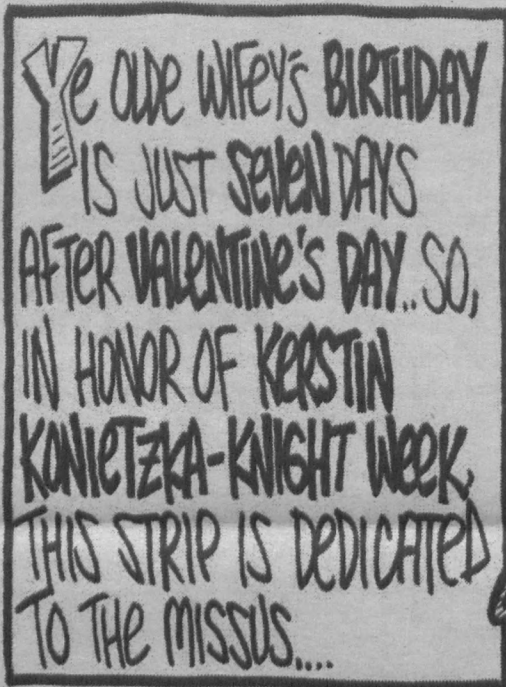 Ye OLDe WIFeY's BIRTHDAY
IS JUST SeVeN DAYS
AFTeR VALeNTINe's DAY.. SO,
IN HONOR OF KeRSTIN
KONIeTZKA-KNIGHT WeeK,
THIS STRIP IS DeDICATeD
TO THe MISSUS....